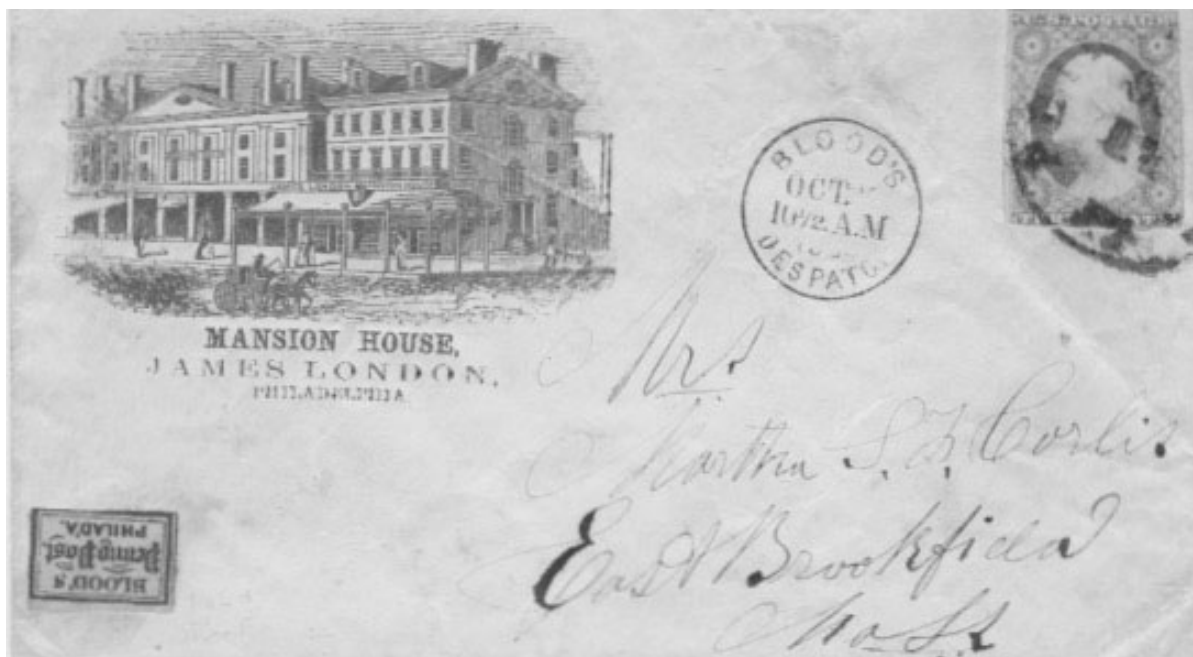 MANSION HOUSE,
JAMES LONDON,
PHILADELPHIA
BLOOD'S
OCT
10½ A.M
DESPATCH
Mrs
Martha S. F. Corlis
East Brookfield
Mass
BLOOD'S
Penny Post.
PHILAD'A.